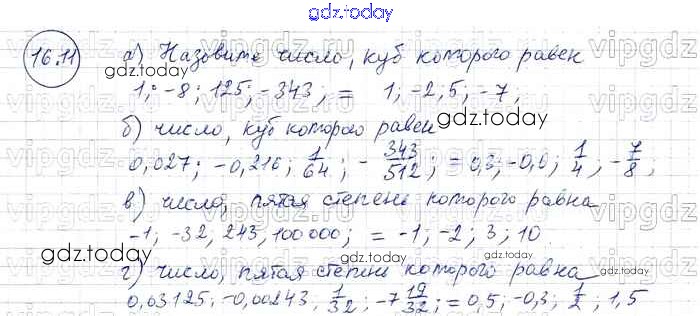 gdz.today
16.11 а) Назовите число, куб которого равен
gdz.today
1; -8; 125; -343; = 1; -2; 5; -7;
gdz.today
б) число, куб которого равен
0,027; -0,216; 1/64; -343/512; = 0,3; -0,6; 1/4; -7/8;
в) число, пятая степень которого равна
-1; -32, 243, 100000; = -1; -2; 3; 10
gdz.today
gdz.today
г) число, пятая степень которого равна
0,03125; -0,00243, 1/32; -7 19/32; = 0,5; -0,3; 1/2; 1,5
gdz.today